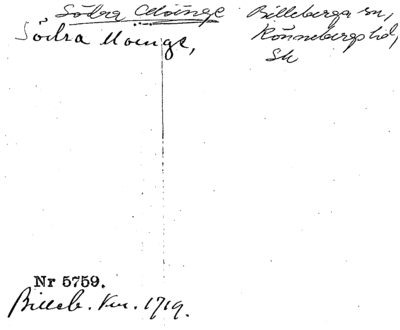 Södra Möinge Billeberga sn,
Södra Moinge, Rönnebergs hd,
Sk
Nr 5759.
Billeb. Km. 1719.